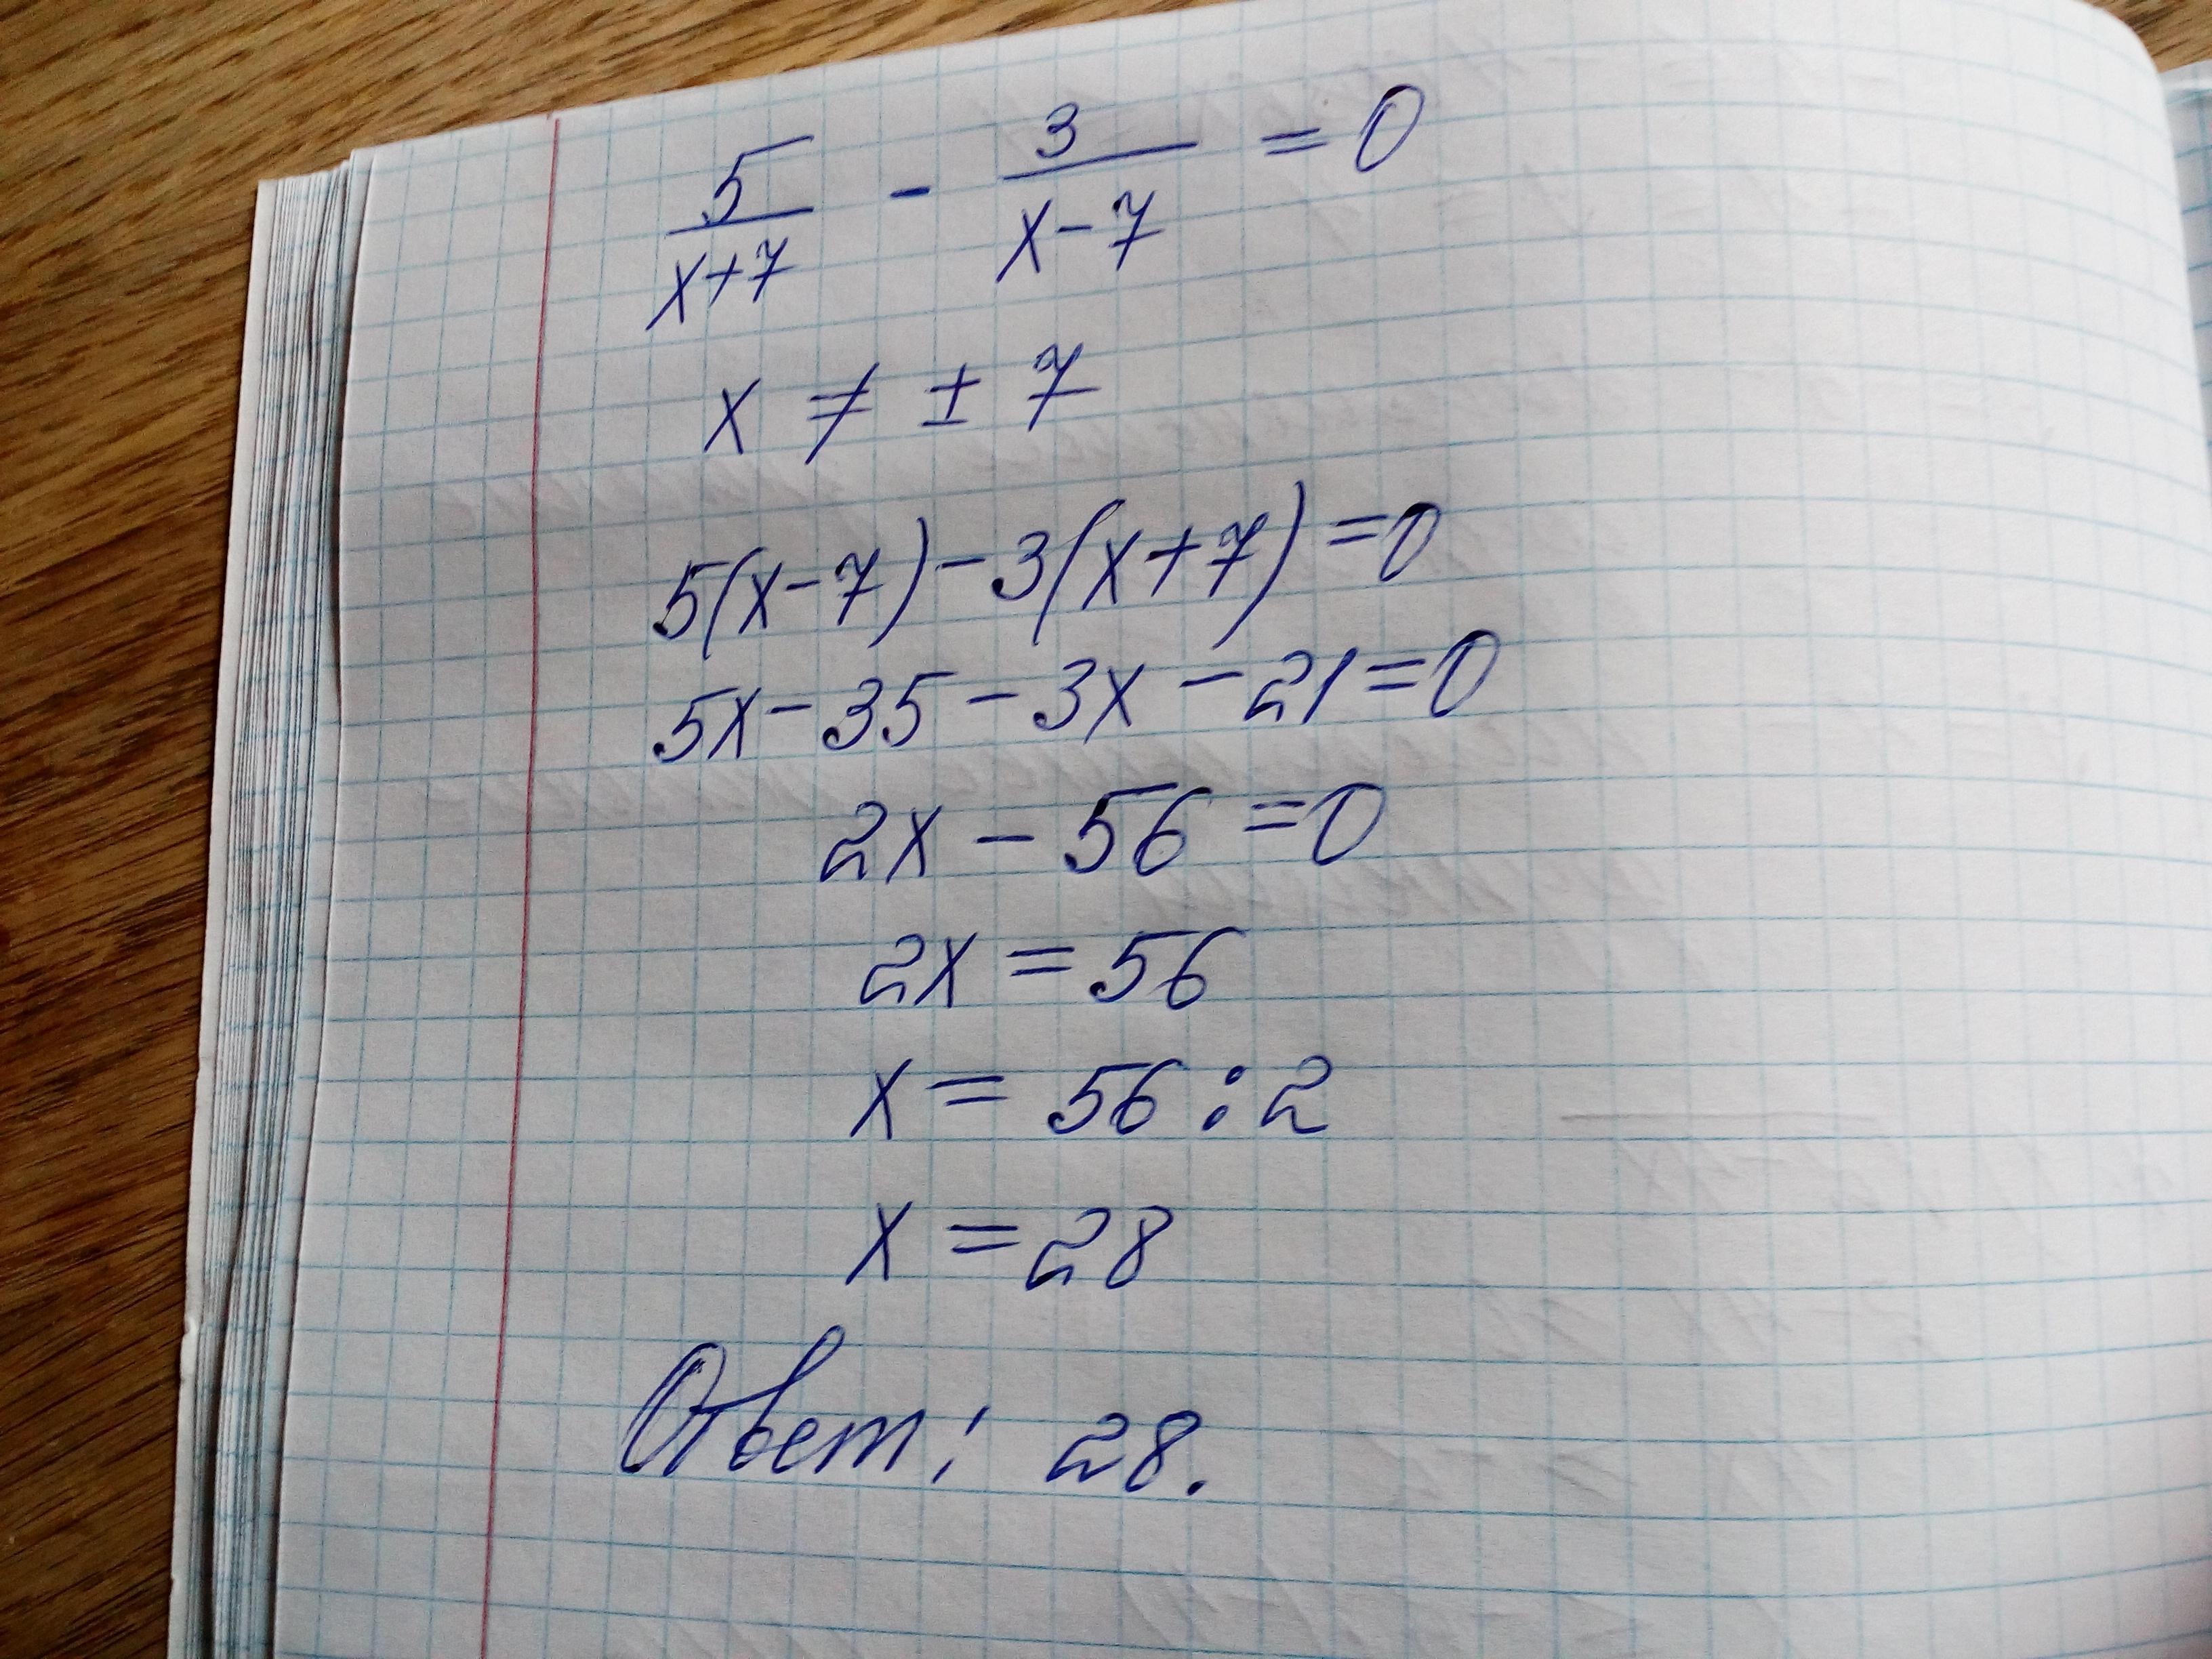 5/(x+7) - 3/(x-7) = 0
x ≠ ± 7
5(x-7)-3(x+7)=0
5x-35-3x-21=0
2x-56=0
2x=56
x=56:2
x=28
Ответ: 28.